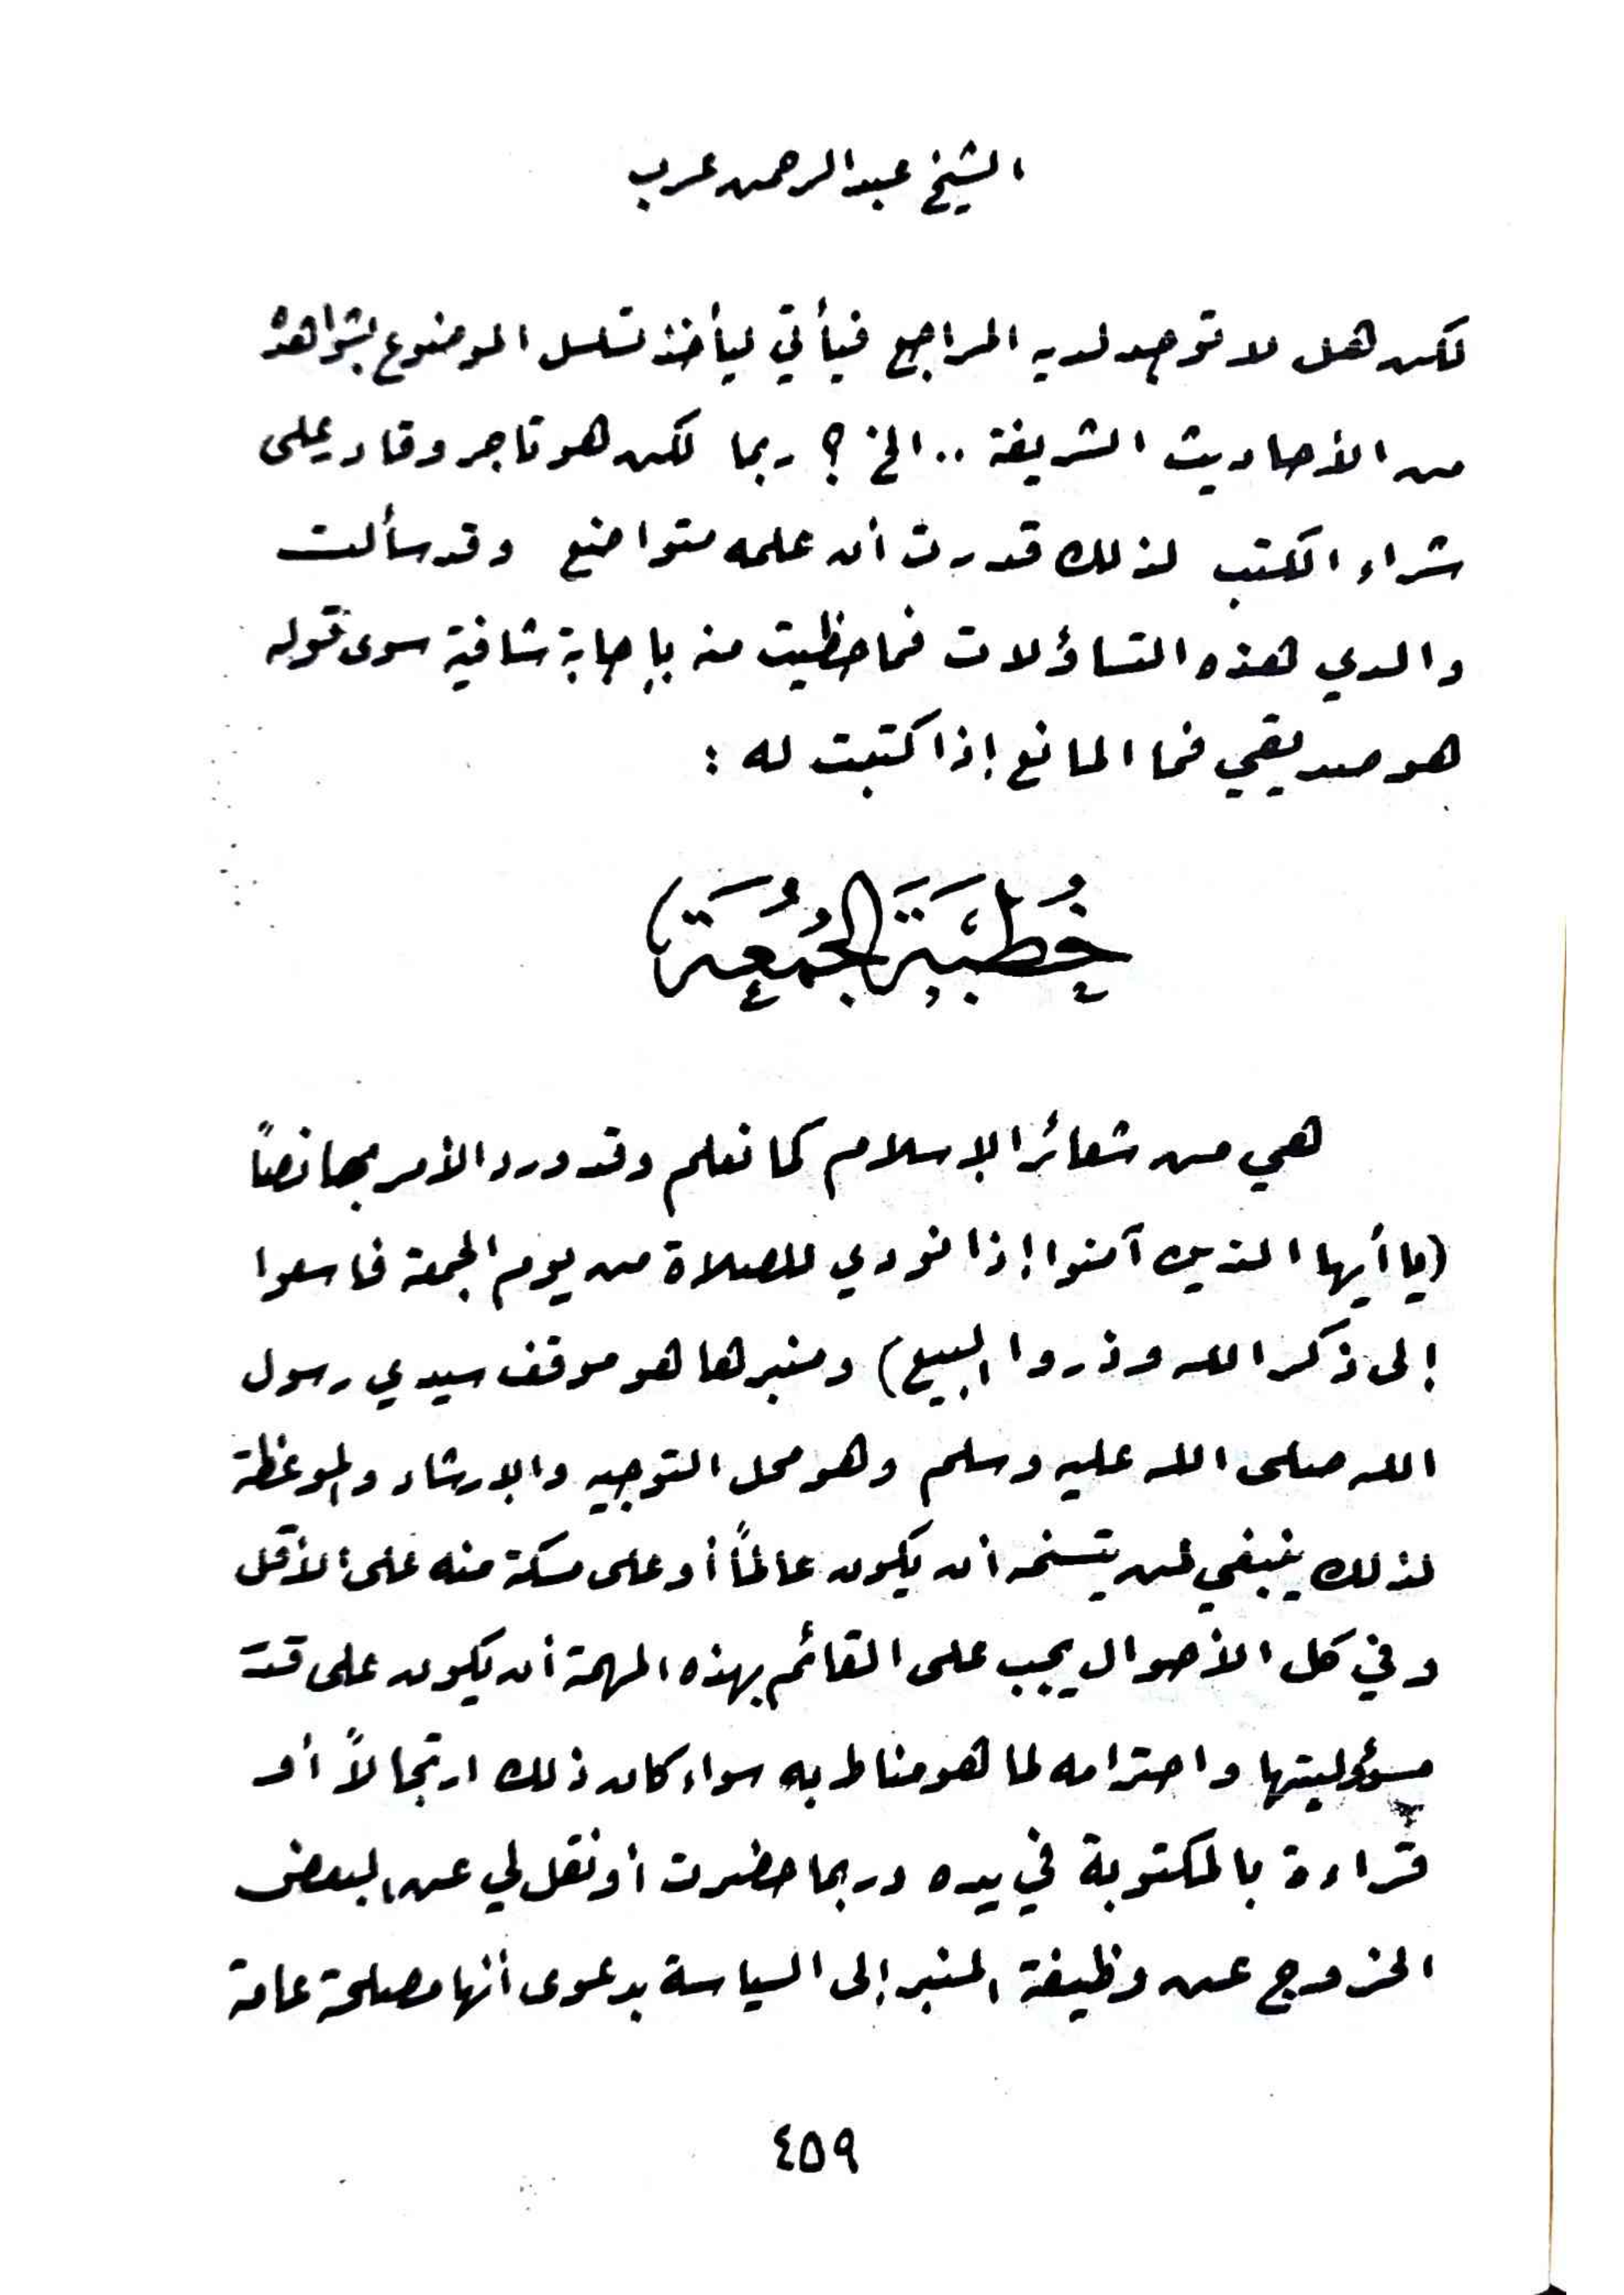 الشيخ عبدالرحمن عرب
لكن هل لا توجد لديه المراجع فيأتي ليأخذ تسلسل الموضوع بشواهده
من الأحاديث الشريفة .. الخ ؟ ربما لكن هو تاجر وقادر على
شراء الكتب لذلك قدرت أن علمه متواضع وقد سألت
والدي هذه التساؤلات فما حظيت منه بإجابة شافية سوى قوله
هو صديقي فما المانع إذا كتبت له :
خُطْبَةَ الجُمُعَة
هي من شعائر الإسلام كما نعلم وقد ورد الأمر بها نصاً
(يا أيها الذين آمنوا إذا نودي للصلاة من يوم الجمعة فاسعوا
إلى ذكر الله وذروا البيع) ومنبرها هو موقف سيدي رسول
الله صلى الله عليه وسلم وهو محل التوجيه والإرشاد والموعظة
لذلك ينبغي لمن يتسنمه أن يكون عالماً أو على مسكة منه على الأقل
وفي كل الأحوال يجب على القائم بهذه المهمة أن يكون على قدر
مسؤوليتها واحترامه لما هو مناط به سواء كان ذلك ارتجالاً أو
قراءة بالمكتوبة في يده وربما حضرت أو نقل لي عن البعض
الخروج عن وظيفة المنبر إلى السياسة بدعوى أنها مصلحة عامة
٤٥٩